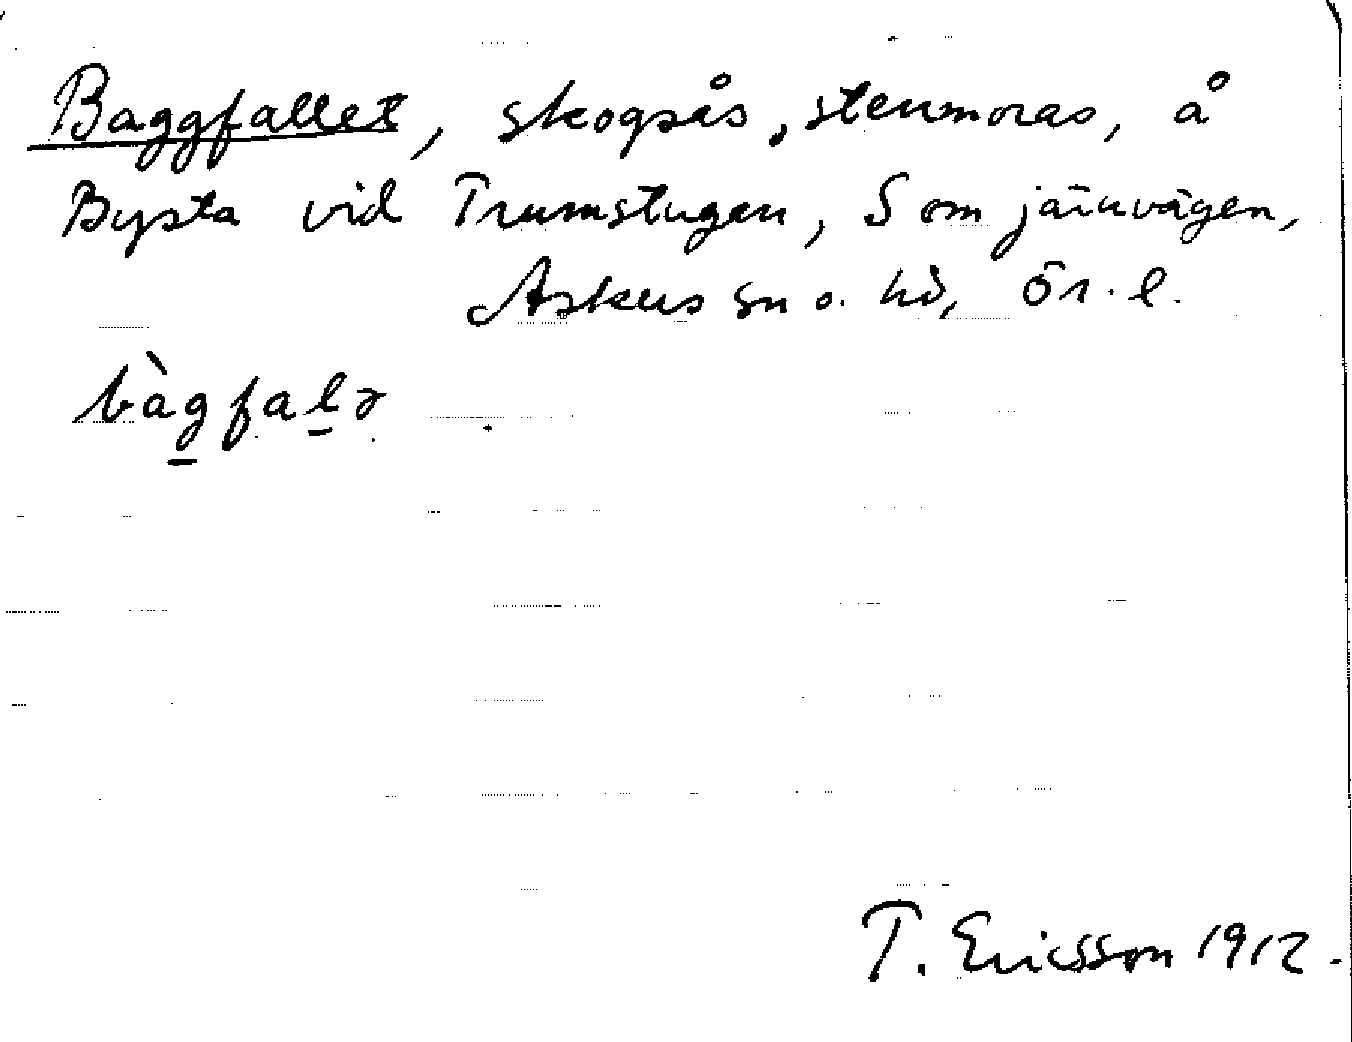 Baggfallet, skogsås, stenmoras, å
Bysta vid Trumstugan, S om järnvägen,
Askers sn o. hd, Ör. l.
bàgfalə
T. Ericsson 1912.